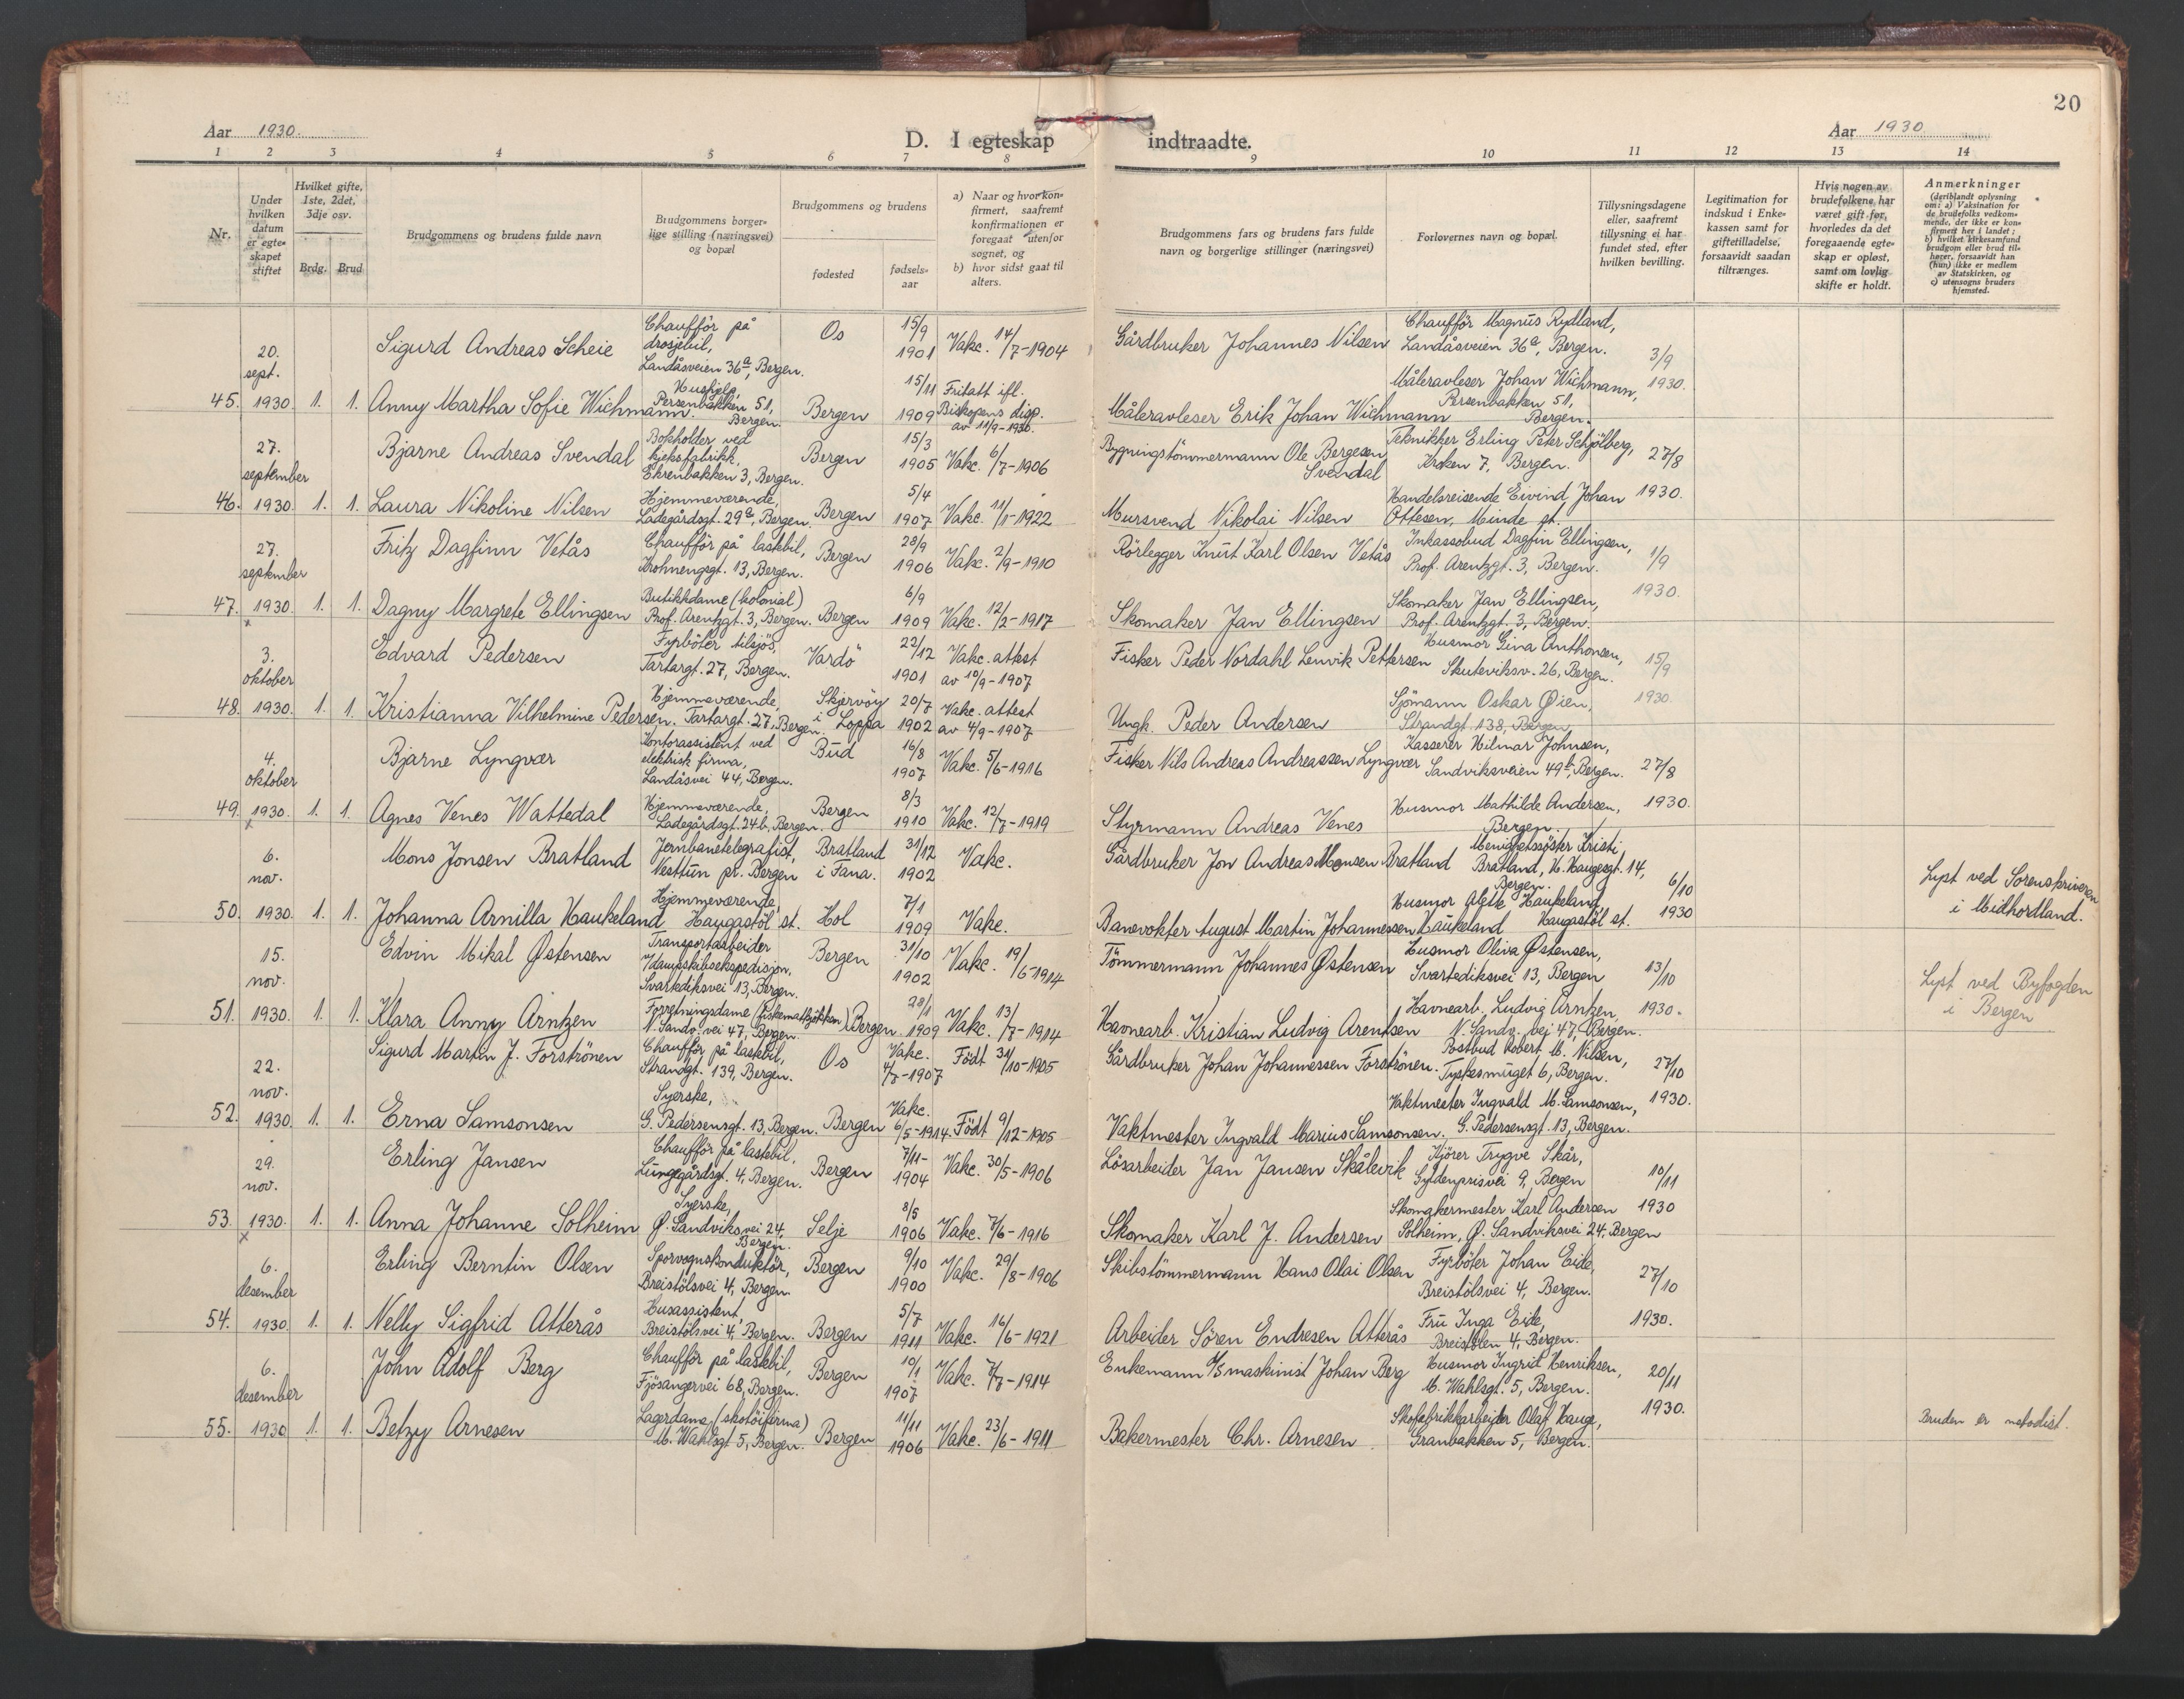 20
Aar 1930.
D. I egteskap indtraadte.
Aar 1930
1 2 3 4 5 6 7 8 9 10 11 12 13 14
Nr.
Under hvilken datum er egteskapet stiftet
Hvilket gifte, 1ste, 2det, 3dje osv.
Brdg. Brud
Brudgommens og brudens fulde navn
Brudgommens borgerlige stilling (næringsvei) og bopæl
Brudgommens og brudens
fødested
fødselsaar
a) Naar og hvor konfirmert, saafremt konfirmationen er foregaat utenfor sognet, og
b) hvor sidst gaat til alters.
Brudgommens fars og brudens fars fulde navn og borgerlige stillinger (næringsvei)
Forlovernes navn og bopæl.
Tillysningsdagene eller, saafremt tillysning ei har fundet sted, efter hvilken bevilling.
Legitimation for indskud i Enkekassen samt for giftetilladelse, forsaavidt saadan tiltrænges.
Hvis nogen av brudefolkene har været gift før, hvorledes da det foregaaende egteskap er opløst, samt om lovlig skifte er holdt.
Anmerkninger
(deriblandt oplysning om: a) Vaksination for de brudefolks vedkommende, der ikke er konfirmert her i landet;
b) hvilket kirkesamfund brudgom eller brud tilhører, forsaavidt han (hun) ikke er medlem av Statskirken, og
c) utensogns bruders hjemsted.
45. 20. sept. 1930 1. 1.
Sigurd Andreas Scheie
Chaufför på drosjebil, Landåsveien 36a, Bergen.
Os
15/9 1901
Vakc. 14/7-1904
Gårdbruker Johannes Nilsen
Chaufför Magnus Rydland, Landåsveien 36a, Bergen.
3/9 1930.
Anny Martha Sofie Wichmann.
Hushjelp, Persenbakken 51, Bergen.
Bergen
15/11 1909
Fritatt ifl. Biskopens disp. av 11/9-1930.
Måleravleser Erik Johan Wichmann
Måleravleser Johan Wichmann, Persenbakken 51, Bergen.
46. 27. september 1930. 1. 1.
Bjarne Andreas Svendal
Bokholder ved kjeksfabrikk, Ehrenbakken 3, Bergen.
Bergen
15/3 1905
Vakc. 6/7-1906
Bygningstömmermann Ole Bergesen Svendal
Teknikker Erling Peter Schjölberg, Kroken 7, Bergen.
27/8 1930.
Laura Nikoline Nilsen
Hjemmeværende, Ladegårdsgt. 29a, Bergen.
Bergen
5/4 1907
Vakc. 11/1-1922
Mursvend Nikolai Nilsen
Handelsreisende Eivind Johan Ottesen, Minde st.
47. 27. september 1930. 1. 1.
Fritz Dagfinn Vetås
Chaufför på lastebil, Krohnengsgt. 13, Bergen.
Bergen
28/9 1906
Vakc. 2/9-1910
Rörlegger Knut Karl Olsen Vetås
Inkassobud Dagfin Ellingsen, Prof. Arentzgt. 3, Bergen.
1/9 1930.
Dagny Margrete Ellingsen
Butikkdame (kolonial) Prof. Arentzgt. 3, Bergen.
Bergen
6/9 1909
Vakc. 12/2-1917
Skomaker Jan Ellingsen
Skomaker Jan Ellingsen, Prof. Arentzgt. 3, Bergen.
x
48. 3. oktober 1930. 1. 1.
Edvard Pedersen
Fyrböter tilsjös, Tartargt. 27, Bergen.
Vardö
22/12 1901
Vakc. attest av 10/9-1907
Fisker Peder Nordahl Lenvik Pettersen
Husmor Gina Anthonsen, Skuteviksv. 26, Bergen.
15/9 1930.
Kristianna Vilhelmine Pedersen.
Hjemmeværende, Tartargt. 27, Bergen.
Skjervöy i Loppa
20/7 1902
Vakc. attest av 4/9-1907
Ungk. Peder Andersen
Sjömann Oskar Øien, Strandgt. 138, Bergen
49. 4. oktober 1930. 1. 1.
Bjarne Lyngvær
Kontorassistent ved elektrisk firma, Landåsvei 44, Bergen.
Bud
16/8 1907
Vakc. 5/6-1916
Fisker Nils Andreas Andreassen Lyngvær
Kasserer Hilmar Johnsen, Sandviksveien 49b, Bergen.
27/8 1930.
Agnes Venes Wattedal
Hjemmeværende, Ladegårdsgt. 24b, Bergen.
Bergen
8/3 1910
Vakc. 12/7-1919
Styrmann Andreas Venes
Husmor Mathilde Andersen, Bergen.
x
50. 6. nov. 1930. 1. 1.
Mons Jonsen Bratland
Jernbanetelegrafist, Nesttun pr. Bergen
Bratland i Fana.
31/12 1902
Vakc.
Gårdbruker Jon Andreas Monsen Bratland
Menighetssöster Kristi Bratland, H. Haugesgt. 14, Bergen.
6/10 1930
Lyst ved Sorenskriveren i Midhordland.
Johanna Arnilla Haukeland
Hjemmeværende, Haugastöl st.
Hol
7/1 1909
Vakc.
Banevokter August Martin Johannessen Haukeland
Husmor Alette Haukeland, Haugastöl st.
51. 15. nov. 1930. 1. 1.
Edvin Mikal Østensen
Transportarbeider v/dampskibsekspedisjon, Svartediksvei 13, Bergen.
Bergen
31/10 1902
Vakc. 19/6-1914
Tömmermann Johannes Østensen
Husmor Oliva Østensen, Svartediksvei 13, Bergen
13/10 1930.
Lyst ved Byfogden i Bergen
Klara Anny Arntzen
Forretningsdame (fiskematkjökken) N. Sandv. vei 47, Bergen.
Bergen.
28/1 1909
Vakc. 13/7-1914
Havnearb. Kristian Ludvig Arentsen
Havnearb. Ludvig Arntzen, N. Sandv. vei 47, Bergen.
52. 22. nov. 1930. 1. 1.
Sigurd Martin J. Forströnen
Chaufför på lastebil, Strandgt. 139, Bergen.
Os
Vakc. 4/7-1907
Födt 31/10-1905
Gårdbruker Johan Johannessen Forströnen.
Postbud Robert M. Nilsen, Tyskesmuget 6, Bergen.
27/10 1930.
Erna Samsonsen
Syerske, G. Pedersensgt. 13, Bergen.
Bergen
Vakc. 6/5-1914.
Födt 9/12-1905
Vaktmester Ingvald Marius Samsonsen.
Vaktmester Ingvald M. Samsonsen, G. Pedersensgt. 13, Bergen.
53. 29. nov. 1930. 1. 1.
Erling Jansen
Chaufför på lastebil, Lungegårdsgt. 4, Bergen.
Bergen
7/11- 1904
Vakc. 30/5-1906
Lösarbeider Jan Jansen Skålevik
Kjörer Trygve Skår, Gyldenprisvei 9, Bergen
10/11 1930
Anna Johanne Solheim
Syerske, Ø. Sandviksvei 24, Bergen.
Selje
8/5 1906
Vakc. 7/6-1916
Skomaker Karl J. Andersen
Skomakermester Karl Andersen Solheim, Ø. Sandviksvei 24, Bergen
x
54. 6. desember 1930. 1. 1.
Erling Berntin Olsen
Sporvognskonduktör, Breistölsvei 4, Bergen.
Bergen
9/10 1900
Vakc. 29/8-1906
Skibstömmermann Hans Olai Olsen
Fyrböter Johan Eide, Breistölsvei 4, Bergen.
27/10 1930.
Nelly Sigfrid Atterås
Husassistent, Breistölsvei 4, Bergen.
Bergen
5/7 1911
Vakc. 16/6-1921
Arbeider Sören Endresen Atterås
Fru Inga Eide, Breistölen 4, Bergen.
55. 6. desember 1930 1. 1.
John Adolf Berg
Chaufför på lastebil, Fjösangervei 68, Bergen.
Bergen
10/1 1907
Vakc. 7/7-1914
Enkemann maskinist Johan Berg
Husmor Ingrid Henriksen, M. Wahlsgt. 5, Bergen.
20/11 1930.
Betzy Arnesen
Lagerdame (skotöifirma) M. Wahlsgt. 5, Bergen.
Bergen
11/11 1906
Vakc. 23/6-1911
Bakermester Chr. Arnesen
Skofabrikkarbeider Olaf Hauge, Granbakken 5, Bergen.
Bruden er metodist.